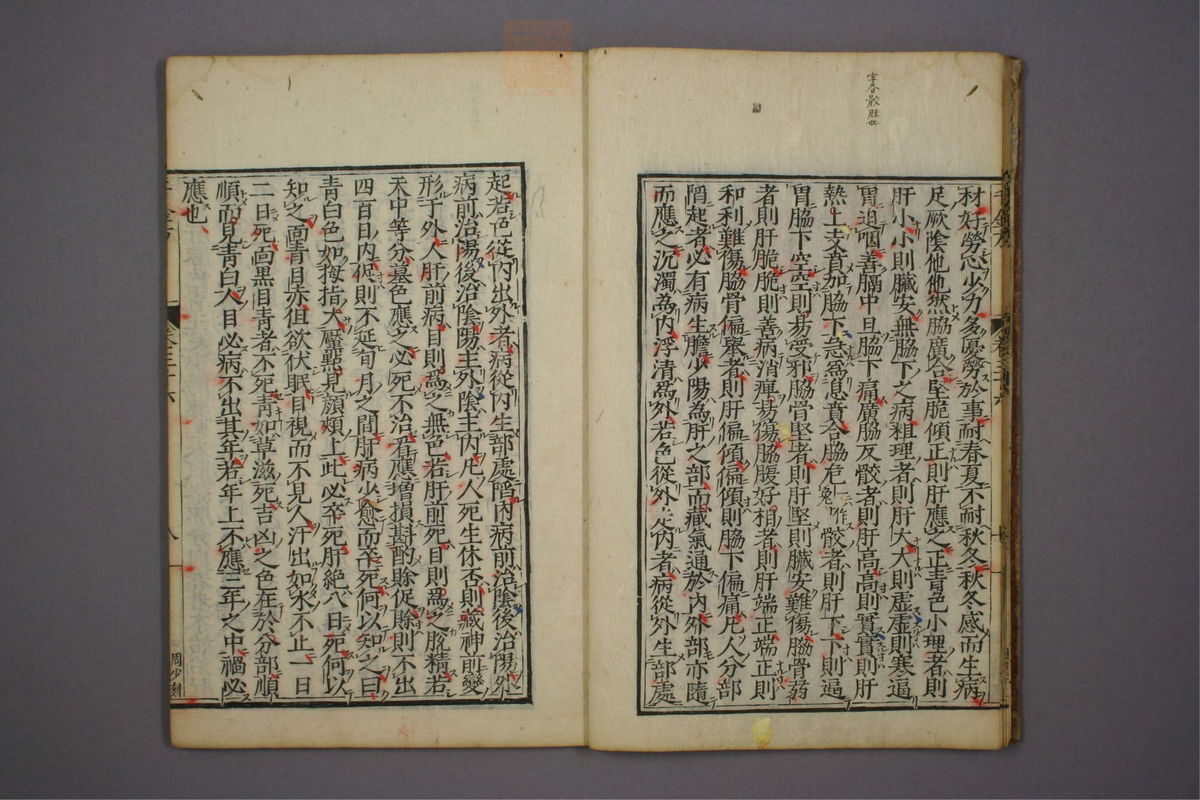 材好勞心少力多憂勞於事耐春夏不耐秋冬秋冬感而生病
足厥陰他他然脇廣合堅脆傾正則肝應之正青色小理者則
肝小小則臟安無脇下之病粗理者則肝大大則虛虛則寒逼
胃迫咽善膈中且脇下痛廣脇反骹者則肝高高則實實則肝
熱上支賁加脇下急為息賁合脇危一作兔骹者則肝下下則逼
胃脇下空空則易受邪脇骨堅者則肝堅則臟安難傷脇骨弱
者則肝脆脆則善病消癉易傷脇腹好相者則肝端正端正則
和利難傷脇骨偏舉者則肝偏傾偏傾則脇下偏痛凡人分部
陷起者必有病生膽少陽為肝之部而藏氣通於內外部亦隨
而應之沉濁為內浮清為外若色從外走內者病從外生部處
起若色從內出外者病從內生部處陷內病前治陰後治陽外
病前治陽後治陰陽主外陰主內凡人死生休否則藏神前變
形于外人肝前病目則為之無色若肝前死目則為之脫精若
天中等分墓色應之必死不治看應增損斟酌賒促賒則不出
四百日內促則不延旬月之間肝病少愈而卒死何以知之曰
青白色如拇指大黶點見顏頰上此必卒死肝絕八日死何以
知之面青目赤但欲伏眠目視而不見人汗出如水不止一曰
二日死面黑目青者不死青如草滋死吉凶之色在於分部順
順而見青白入目必病不出其年若年上不應三年之中禍必
應也
卷二十六
八
周少刻